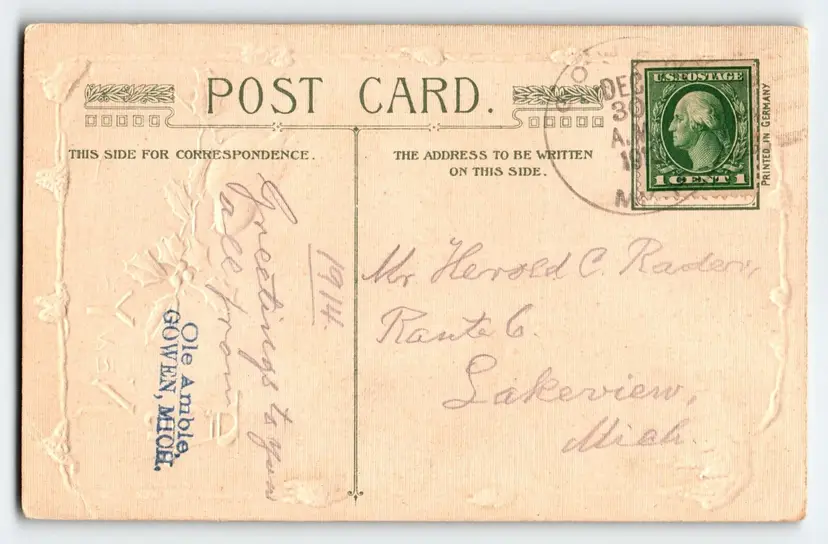 POST CARD.
THIS SIDE FOR CORRESPONDENCE.
THE ADDRESS TO BE WRITTEN
ON THIS SIDE.
DEC
30
U.S. POSTAGE
1 CENT 1
PRINTED IN GERMANY
1914.
Greetings to you
all from
Ole Amble,
GOWEN, MICH.
Mr Herold C. Rader,
Raute 6.
Lakeview,
Mich.